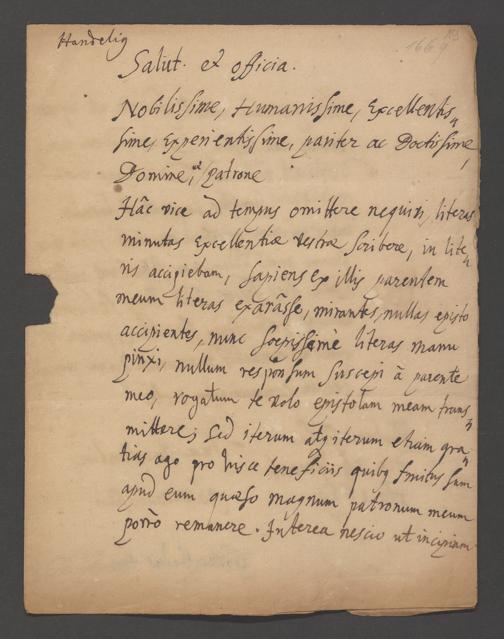 Handelig
1669
Salut. et officia.
Nobilissime, Humanissime, Excellentis=
sime, Experientissime, pariter ac Doctissime,
Domine, et Patrone
Hâc vice ad tempus omittere nequivi, literas
minutas Excellentiæ vestræ scribere, in lite=
ris accipiebam, sapiens ex illis parentem
meum literas exarâsse, mirantes, nullas episto
accipientes, nunc soepissimè literas manu
pinxi, nullum responsum suscepi â parente
meo, rogatum te volo epistolam meam trans=
mittere; sed iterum atq iterum etiam gra=
tias ago pro hisce beneficiis quibq fruitus sum
apud eum quæso magnum patronum meum
porrò remanere. Interea nescio ut incipiam